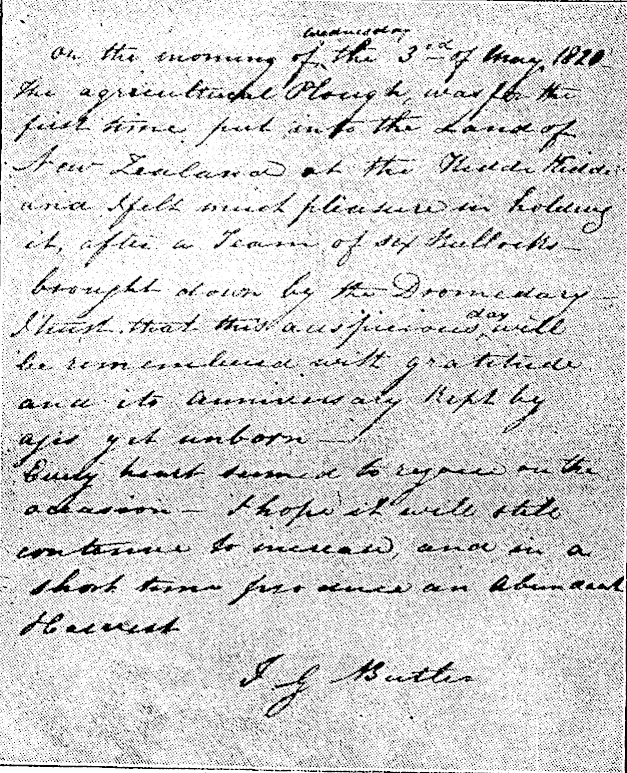 Wednesday
On the morning of the 3rd of May, 1820
the agricultural Plough, was for the
first time put into the Land of
New Zealand at the Kiddi Kiddi
and I felt much pleasure in holding
it, after a Team of six Bullocks
brought down by the Dromedary –
I trust that this auspicious day will
be remembered with gratitude
and its anniversary Kept by
ages yet unborn –
Every heart seemed to rejoice on the
occasion – I hope it will still
continue to increase, and in a
short time produce an Abundant
Harvest
J G Butler